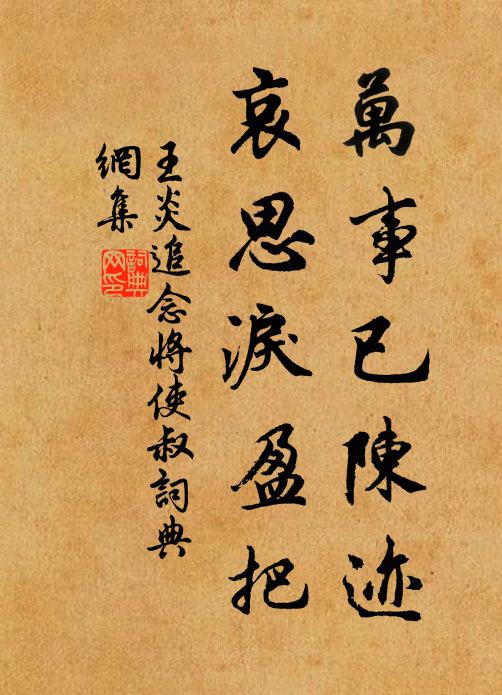 萬事已陳迹
哀思淚盈把
王炎追念將使叔詞典
網集
詞典
网印